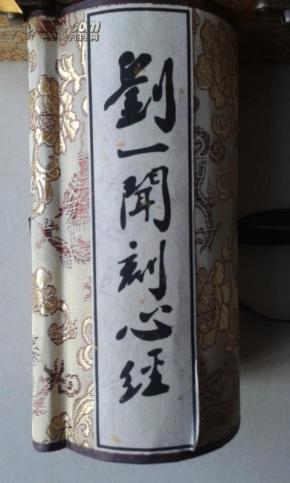 劉一聞刻心經